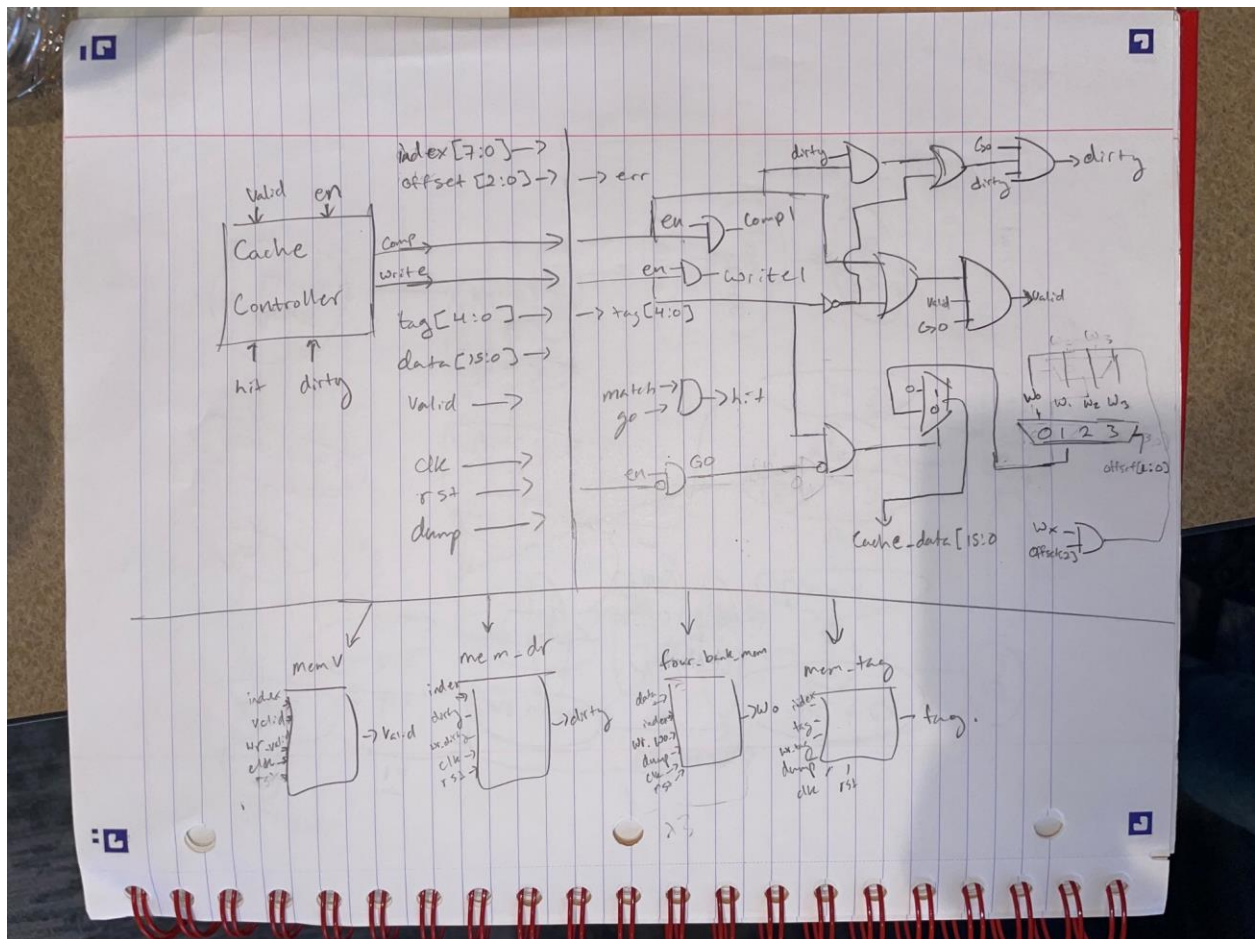 index[7:0]
offset[2:0]
valid en
Cache
Controller
comp
write
tag[4:0]
data[15:0]
hit dirty
valid
clk
rst
dump
err
en
comp1
en
write1
tag[4:0]
match
go
hit
en
GO
dirty
GO
dirty
dirty
valid
GO
valid
W0 W1 W2 W3
0 1 2 3
offset[2:0]
Cache_data[15:0
Wx
offset[2]
mem V
index
valid
wr_valid
clk
valid
mem_dr
index
dirty
wr.dirty
clk
rst
dirty
four_bank_mem
data
index
wr.W0
dump
clk
rst
W0
x3
mem_tag
index
tag
wr.tag
dump
clk
rst
tag.